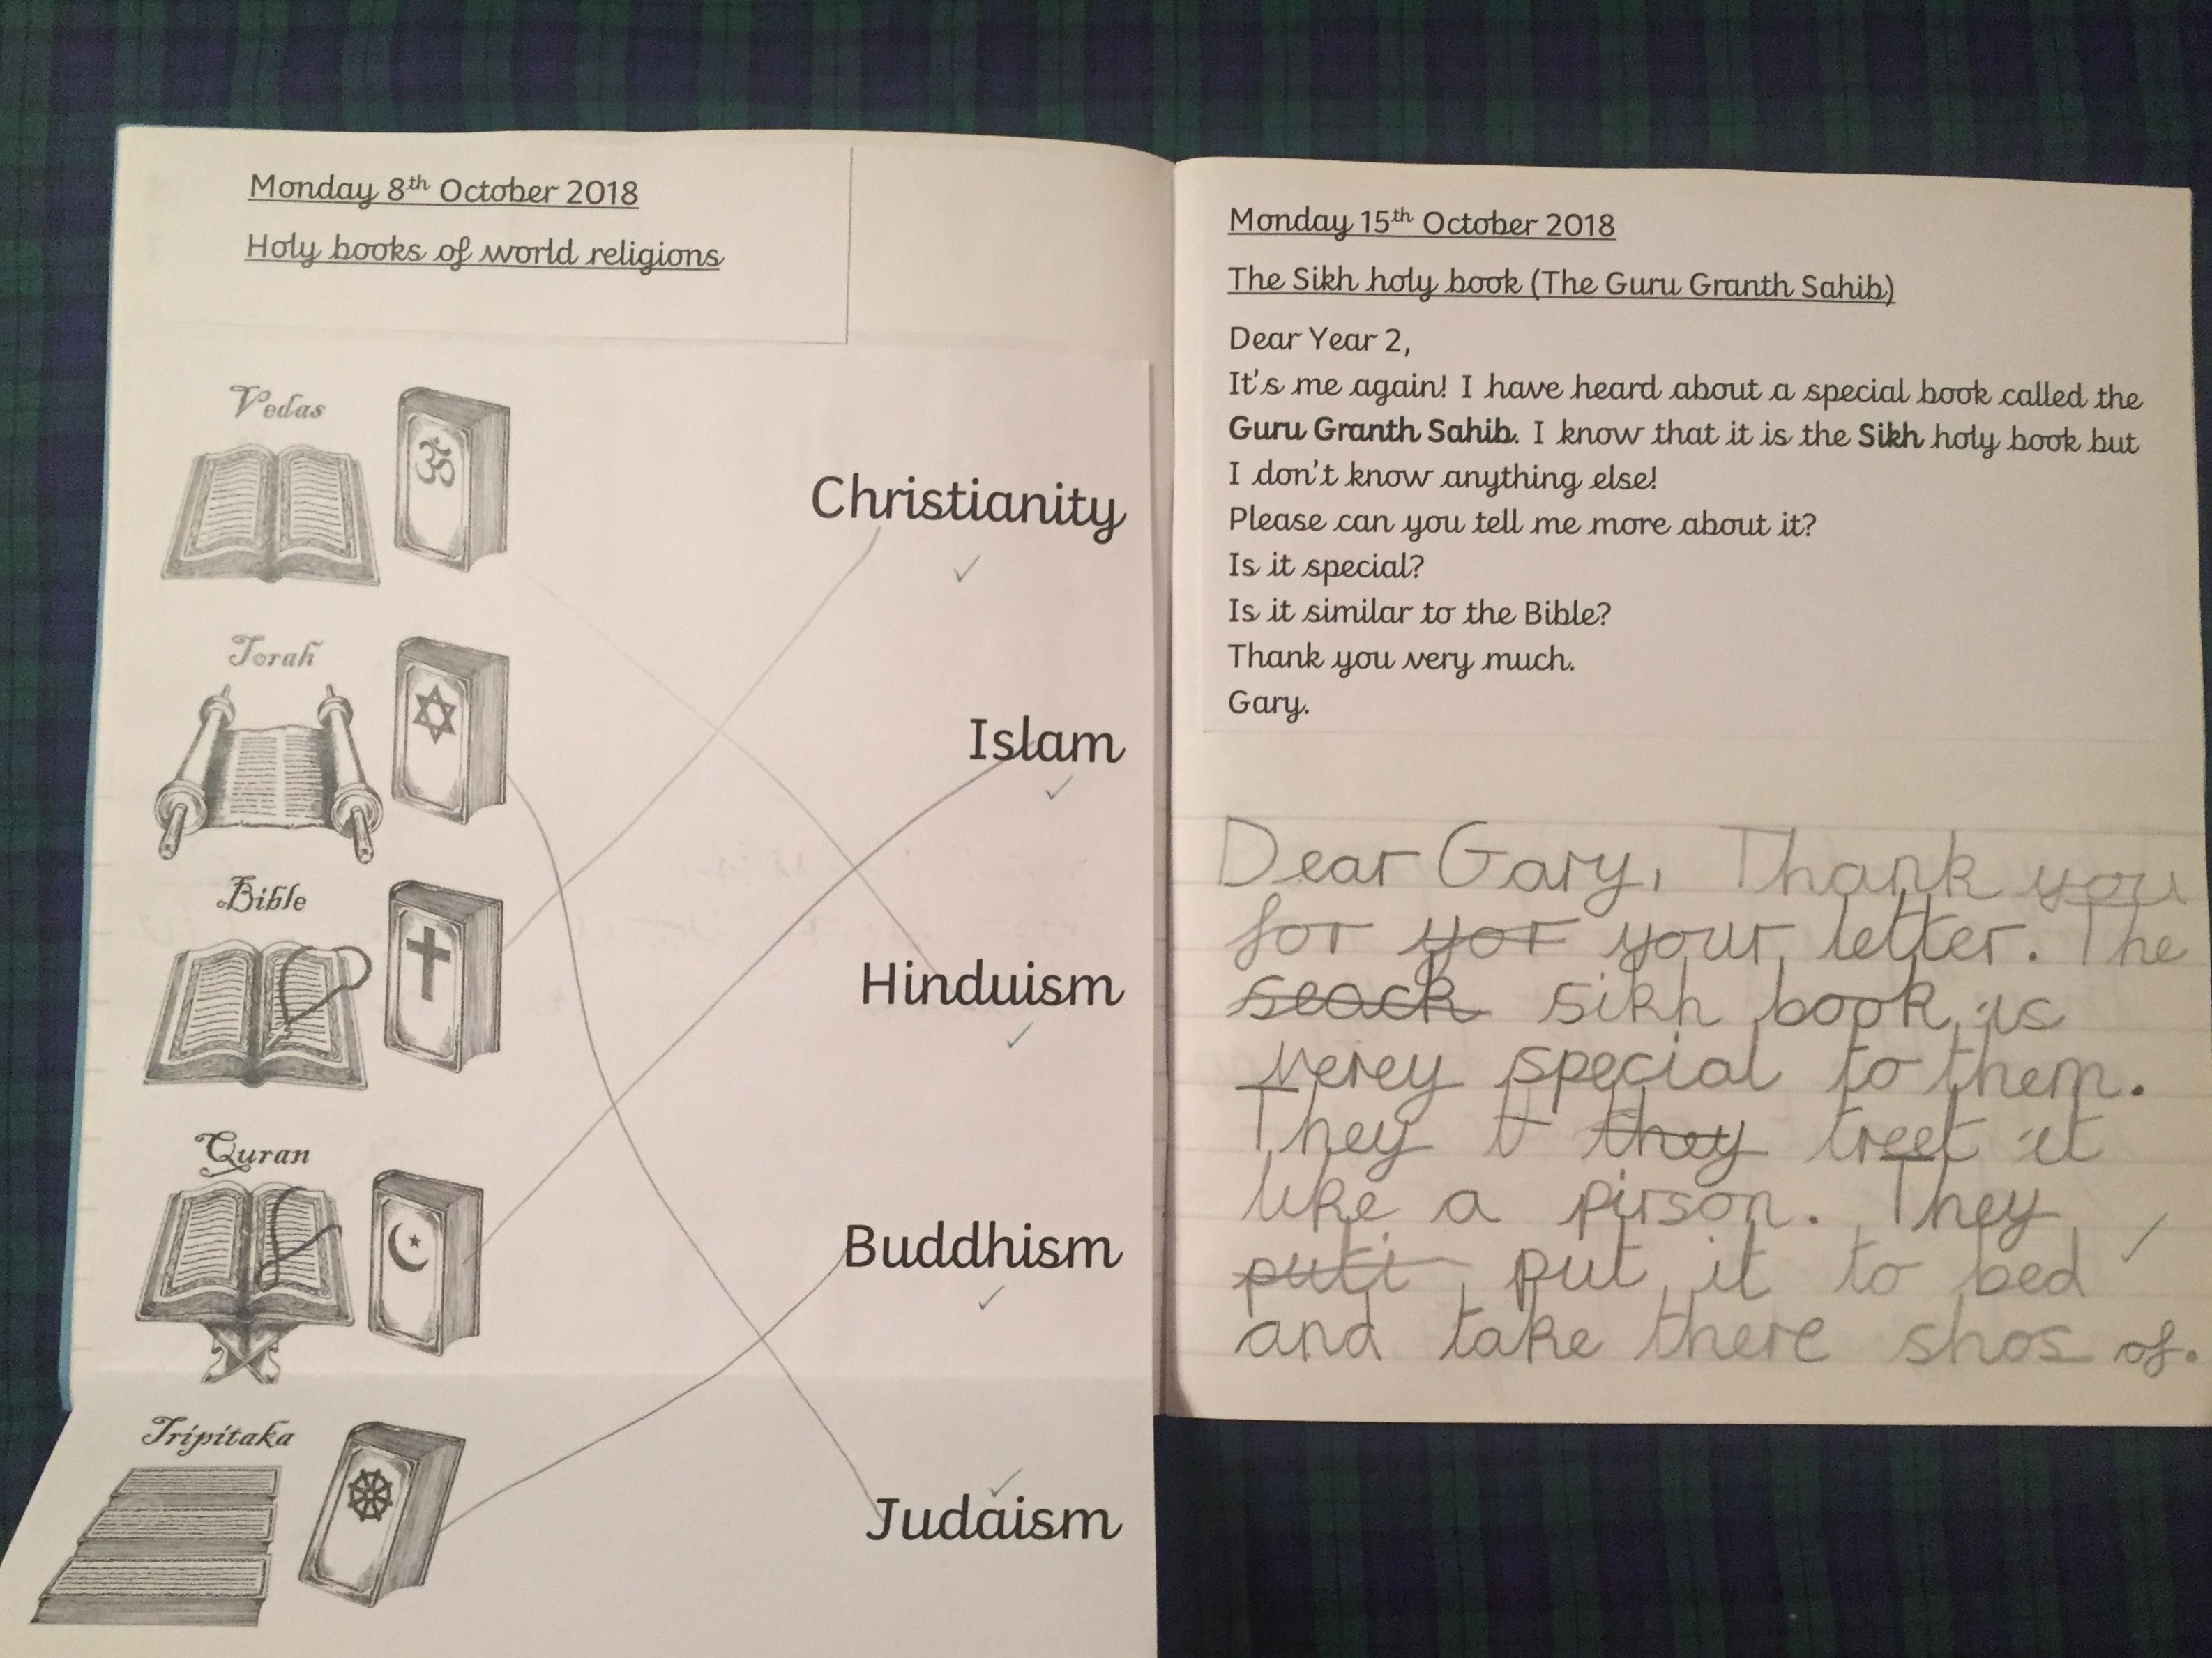 Monday 8th October 2018
Holy books of world religions
Vedas
Christianity
Torah
Islam
Bible
Hinduism
Quran
Buddhism
Tripitaka
Judaism
Monday 15th October 2018
The Sikh holy book (The Guru Granth Sahib)
Dear Year 2,
It's me again! I have heard about a special book called the
Guru Granth Sahib. I know that it is the Sikh holy book but
I don't know anything else!
Please can you tell me more about it?
Is it special?
Is it similar to the Bible?
Thank you very much.
Gary.
Dear Gary, Thank you
for yor your letter. The
seack sikh book is
verey special to them.
They t they treet it
like a pirson. They
puti put it to bed
and take there shos of.